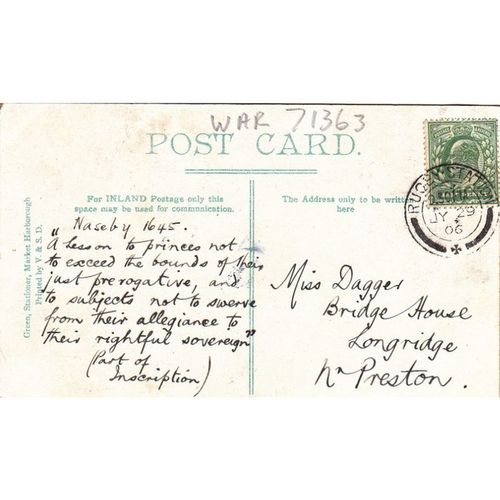 WAR 71363
POST CARD.
For INLAND Postage only this
space may be used for communication.
The Address only to be written
here
Green, Stationer, Market Harborough
Printed by V. & S. D.
„ Naseby 1645.
A lesson to princes not
to exceed the bounds of their
just prerogative, and
to subjects not to swerve
from their allegiance to
their rightful sovereign"
(Part of
Inscription)
Miss Dagger
Bridge House
Longridge
Nr Preston.
RUGBY STATION
JY 29
06